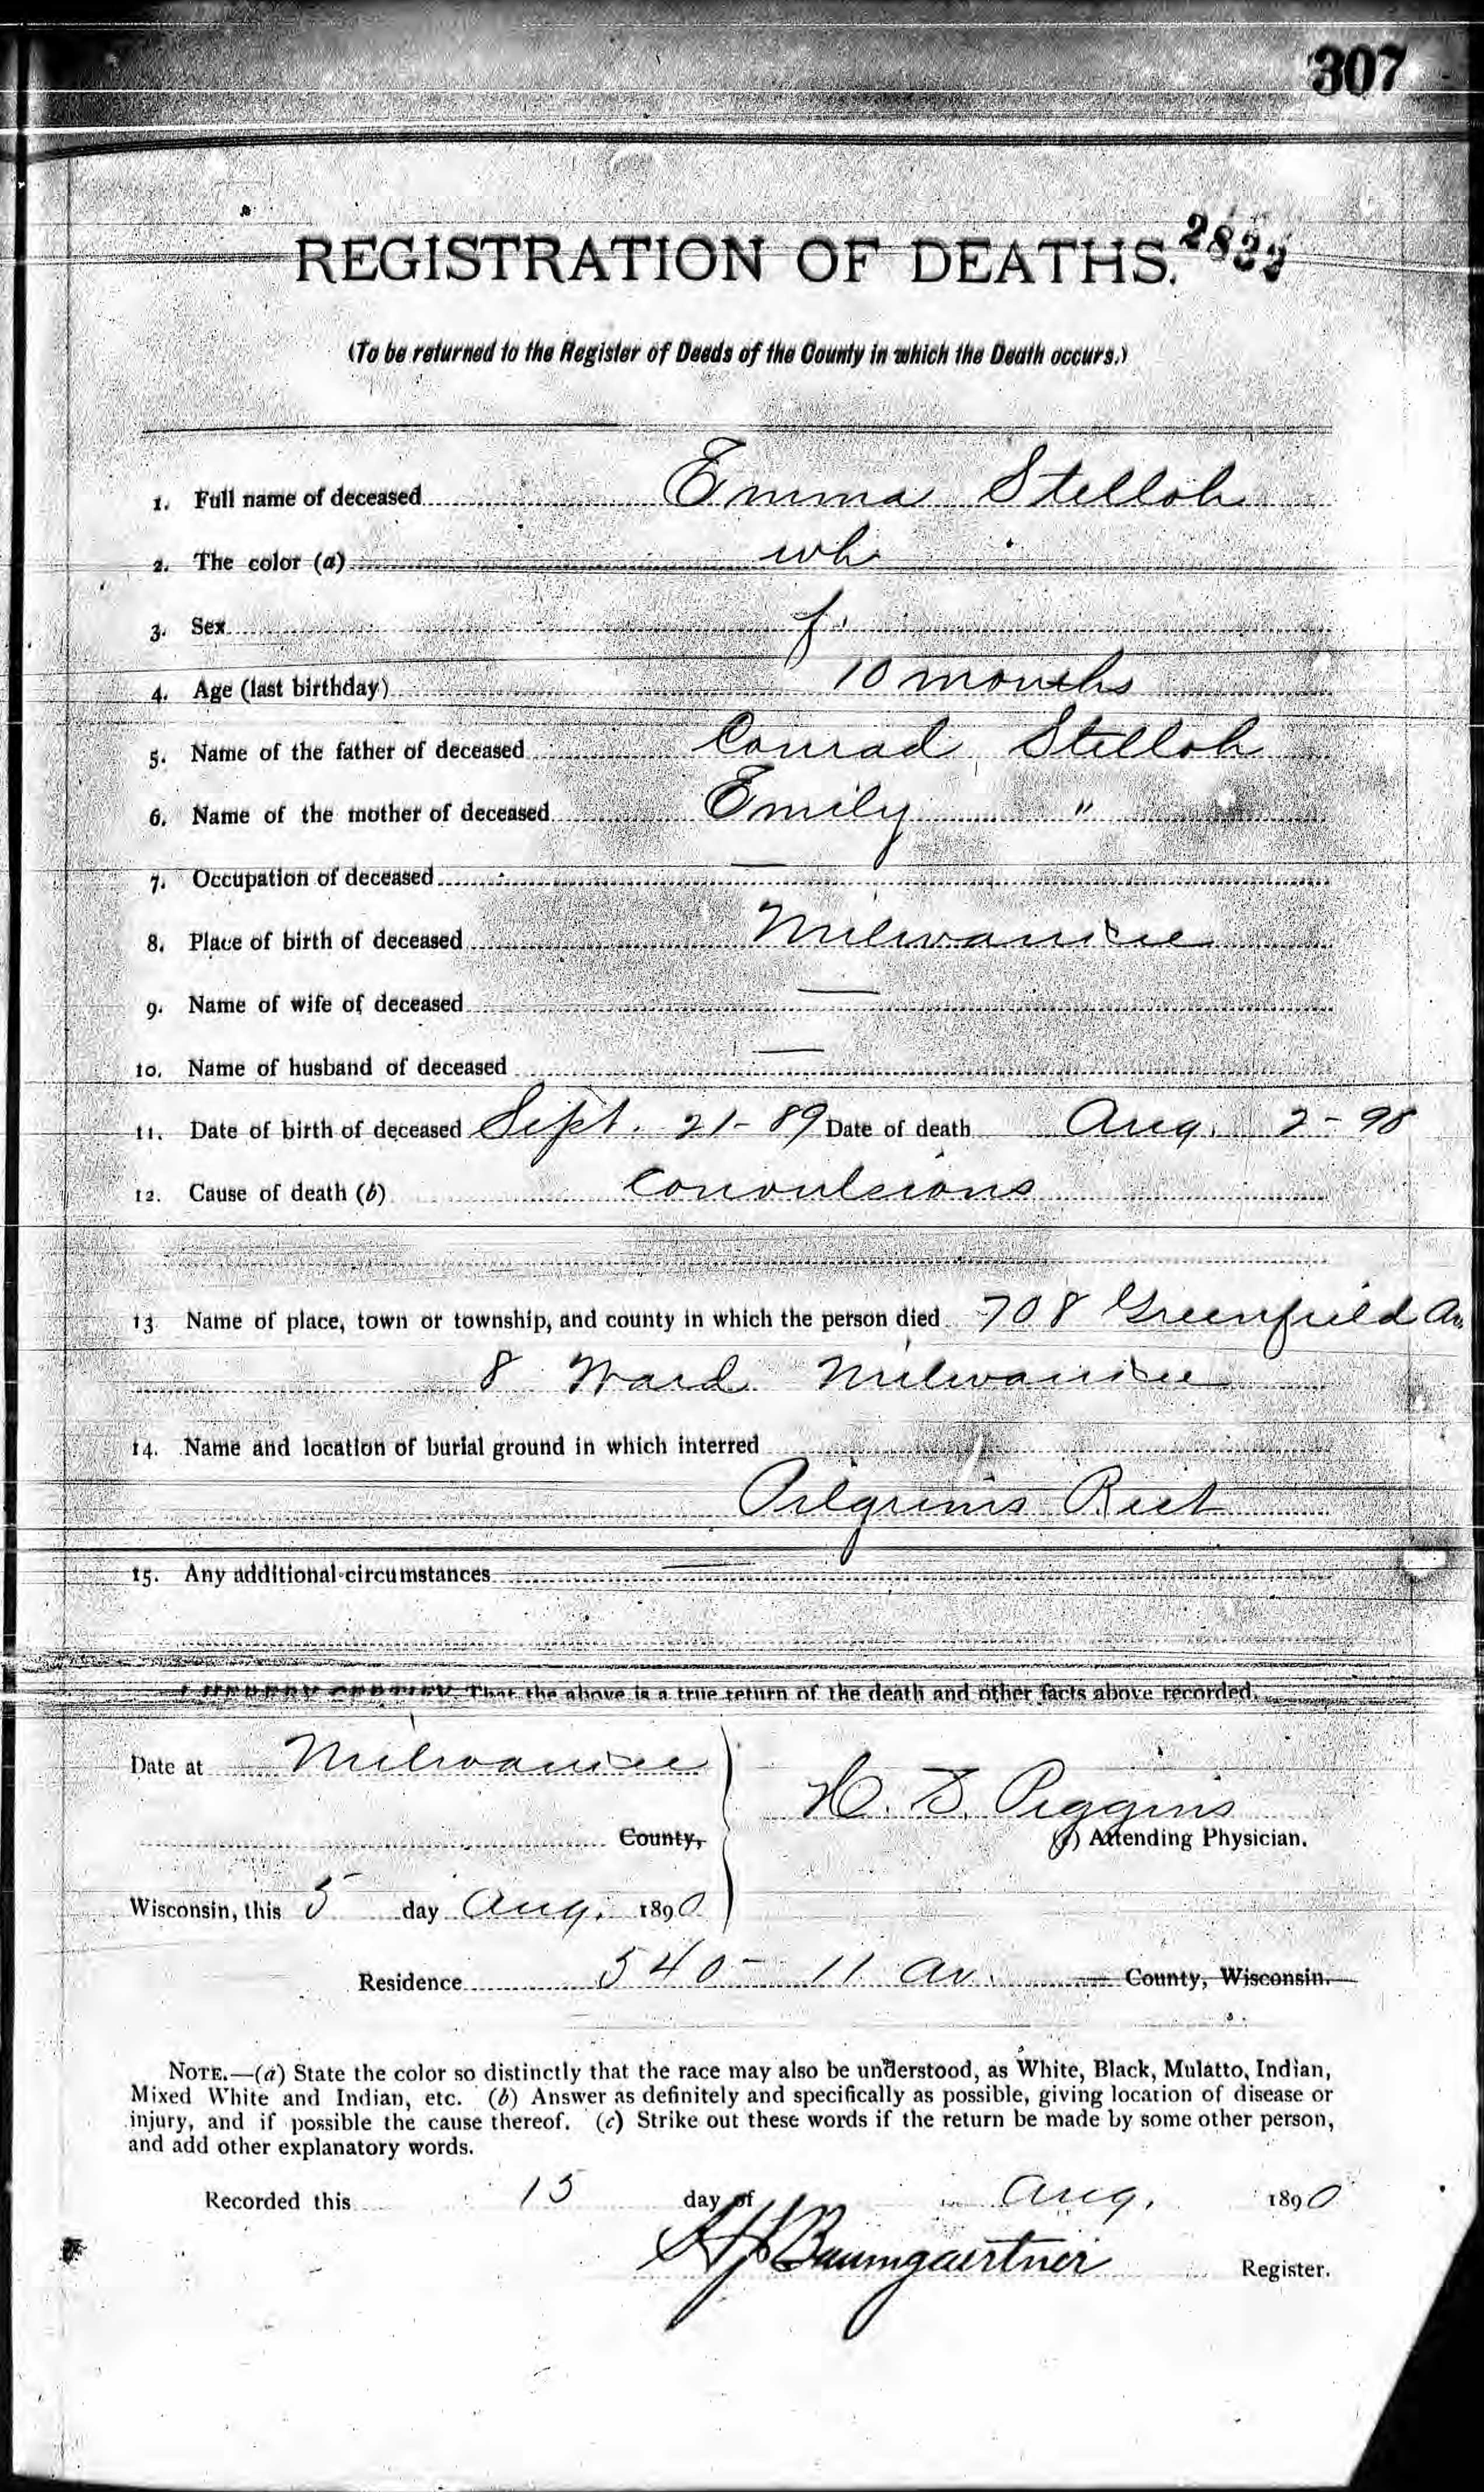 307
REGISTRATION OF DEATHS. 2833
(To be returned to the Register of Deeds of the County in which the Death occurs.)
1. Full name of deceased Emma Stelloh
2. The color (a) wh
3. Sex f.
4. Age (last birthday) 10 months
5. Name of the father of deceased Conrad Stelloh
6. Name of the mother of deceased Emily "
7. Occupation of deceased —
8. Place of birth of deceased Milwaukee
9. Name of wife of deceased —
10. Name of husband of deceased —
11. Date of birth of deceased Sept. 21-89 Date of death Aug. 2-90
12. Cause of death (b) Convulsions
13 Name of place, town or township, and county in which the person died 708 Greenfield Av.
8 Ward Milwaukee
14. Name and location of burial ground in which interred
Pilgrims Rest
15. Any additional circumstances —
I HEREBY CERTIFY That the above is a true return of the death and other facts above recorded.
Date at Milwaukee
H. D. Piggins
County,
(c) Attending Physician.
Wisconsin, this 5 day Aug. 1890
Residence 540 - 11 Av. County, Wisconsin.
NOTE.—(a) State the color so distinctly that the race may also be understood, as White, Black, Mulatto, Indian,
Mixed White and Indian, etc. (b) Answer as definitely and specifically as possible, giving location of disease or
injury, and if possible the cause thereof. (c) Strike out these words if the return be made by some other person,
and add other explanatory words.
Recorded this 15 day of Aug. 1890
Baumgaertner Register.